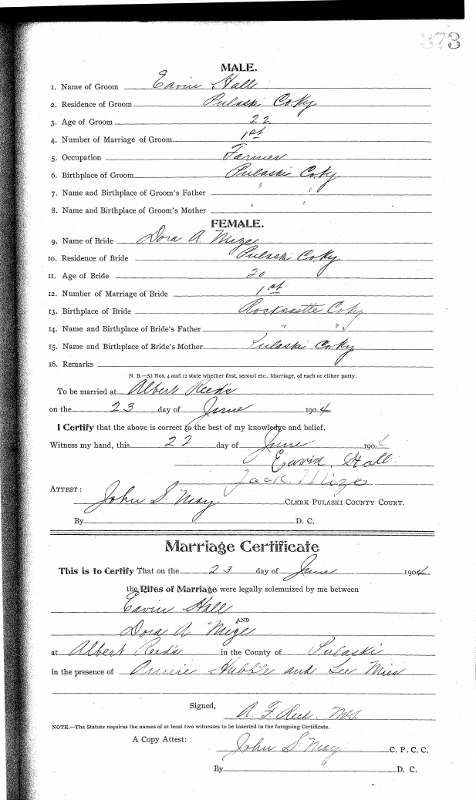 373
MALE.
1. Name of Groom Eavin Hall
2. Residence of Groom Pulaski Co Ky
3. Age of Groom 22
4. Number of Marriage of Groom 1st
5. Occupation Farmer
6. Birthplace of Groom Pulaski Co Ky
7. Name and Birthplace of Groom's Father " "
8. Name and Birthplace of Groom's Mother " "
FEMALE.
9. Name of Bride Dora A. Mize
10. Residence of Bride Pulaski Co Ky
11. Age of Bride 20
12. Number of Marriage of Bride 1st
13. Birthplace of Bride Rockcastle Co Ky
14. Name and Birthplace of Bride's Father " "
15. Name and Birthplace of Bride's Mother Pulaski Co Ky
16. Remarks
N. B.—At Nos. 4 and 12 state whether first, second etc., Marriage, of each or either party.
To be married at Albert Reeds
on the 23 day of June 1904
I Certify that the above is correct to the best of my knowledge and belief.
Witness my hand, this 22 day of June 1904
Eavin Hall
Jack Mize
ATTEST: John S. May CLERK PULASKI COUNTY COURT.
By D. C.
Marriage Certificate
This is to Certify That on the 23 day of June 1904
the Rites of Marriage were legally solemnized by me between
Eavin Hall
AND
Dora A Mize
at Albert Reeds in the County of Pulaski
in the presence of Hubble and Lee
Signed, A. F. Reed.
NOTE.—The Statute requires the names of at least two witnesses to be inserted in the foregoing Certificate.
A Copy Attest: John S. May C. P. C. C.
By D. C.